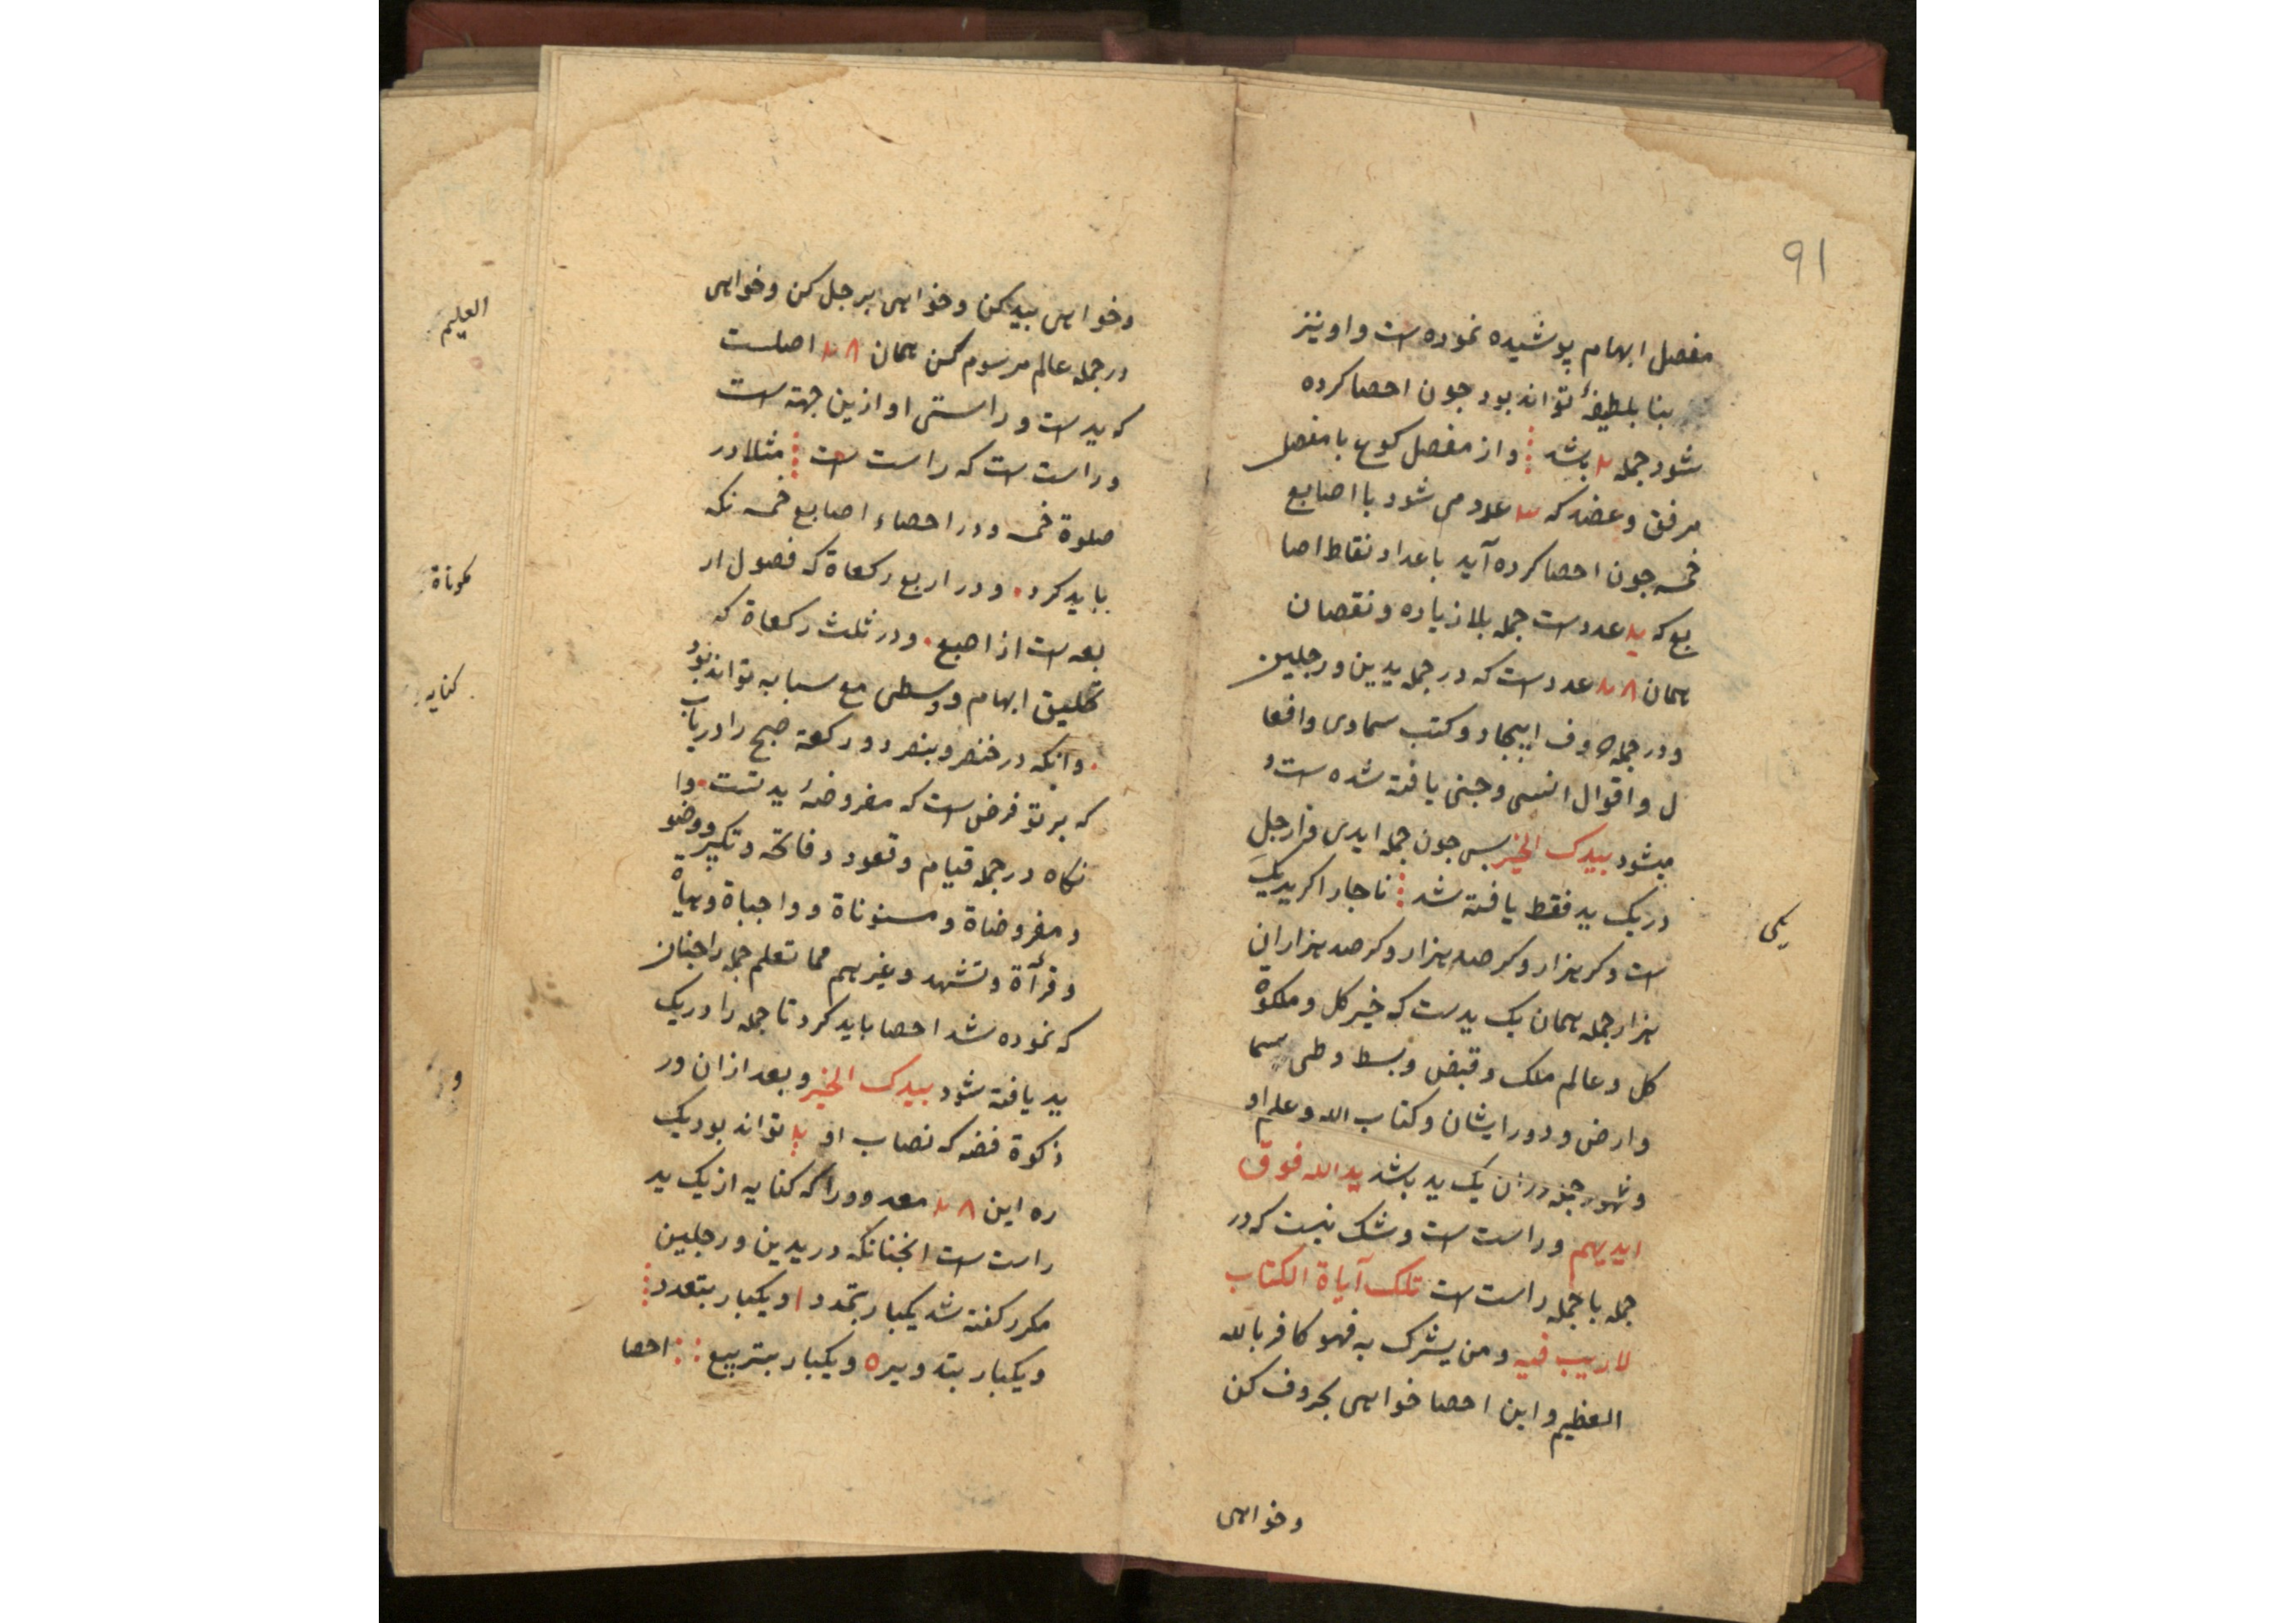 91
مفصل ابهام پوشیده نموده است و او نیز
بنا بلطیفهٔ تواند بود جون احصا کرده
شود جمله باشد و از مفصل کوع با مفصل
مرفق و عضد که عدد می شود با اصابع
خمسه جون احصا کرده آید با عداد نقاط اصا
بع که ید عددست جمله بلا زیاده و نقصان
همان ٢٨ عددست که در جمله یدین و رجلین
و در جمله حروف ابیجاد و کتب سماوی وافعا
ل و اقوال انسی و جنی یافته شده است و
میشود بیدک الخیر بس جون جمله ایدی وارجل
در یک ید فقط یافته شد ناجار اکر ید یک
یکی
است و کر هزار و کر صد هزار و کر صد هزاران
هزار جمله همان یک یدست که خیر کل و ملکوة
کل و عالم ملک و قبض و بسط و طی سما
وارض و دور ایشان و کتاب الله و علم او
و شهود جنه در ان یک ید باشد ید الله فوق
ایدیهم و راست است و شک نیست که در
جمله با جمله راست است تلک آیاة الکتاب
لا ریب فیه و من یشرک به فهو کافر بالله
العظیم و این احصا خواهی بحروف کن
وخواهی
وخواهی بید کن و خواهی برجل کن و خواهی
در جمله عالم مرسوم کن همان ٢٨ اصلست
که یدست و راستی او ازین جهة است
و راست است که راست است مثلا در
صلوة خمسه و در احصاء اصابع خمسه نکه
بباید کرد و در اربع رکعاة که فصول ار
بعه است از اصبع و در ثلث رکعاة که
تحلیق ابهام و وسطی مع سبابه تواند بود
وانکه در خنصر و بنصر دو رکعة صبح را دریاب
که بر تو فرض است که مفروضهٔ ید تست وا
نکاه در جمله قیام و قعود و فاتحه و تکبیر و وضو
و مفروضاة و مسنوناة و واجباة و هیأة
و قرأة و تشهد و غیرهم مما تعلم جمله راجنان
که نموده شد احصا باید کرد تا جمله را در یک
ید یافته شود بیدک الخیر و بعد ازان در
زکوة فضه که نصاب او تواند بود یک
ره این ٢٨ معدود را که کنایه از یک ید
راست است انجنانکه در یدین و رجلین
مکرر کفته شد یکبار بتمدد ا و یکبار بتعدد
و یکبار بتدویر ه و یکبار بتربیع احصا
العلیم
کنایه